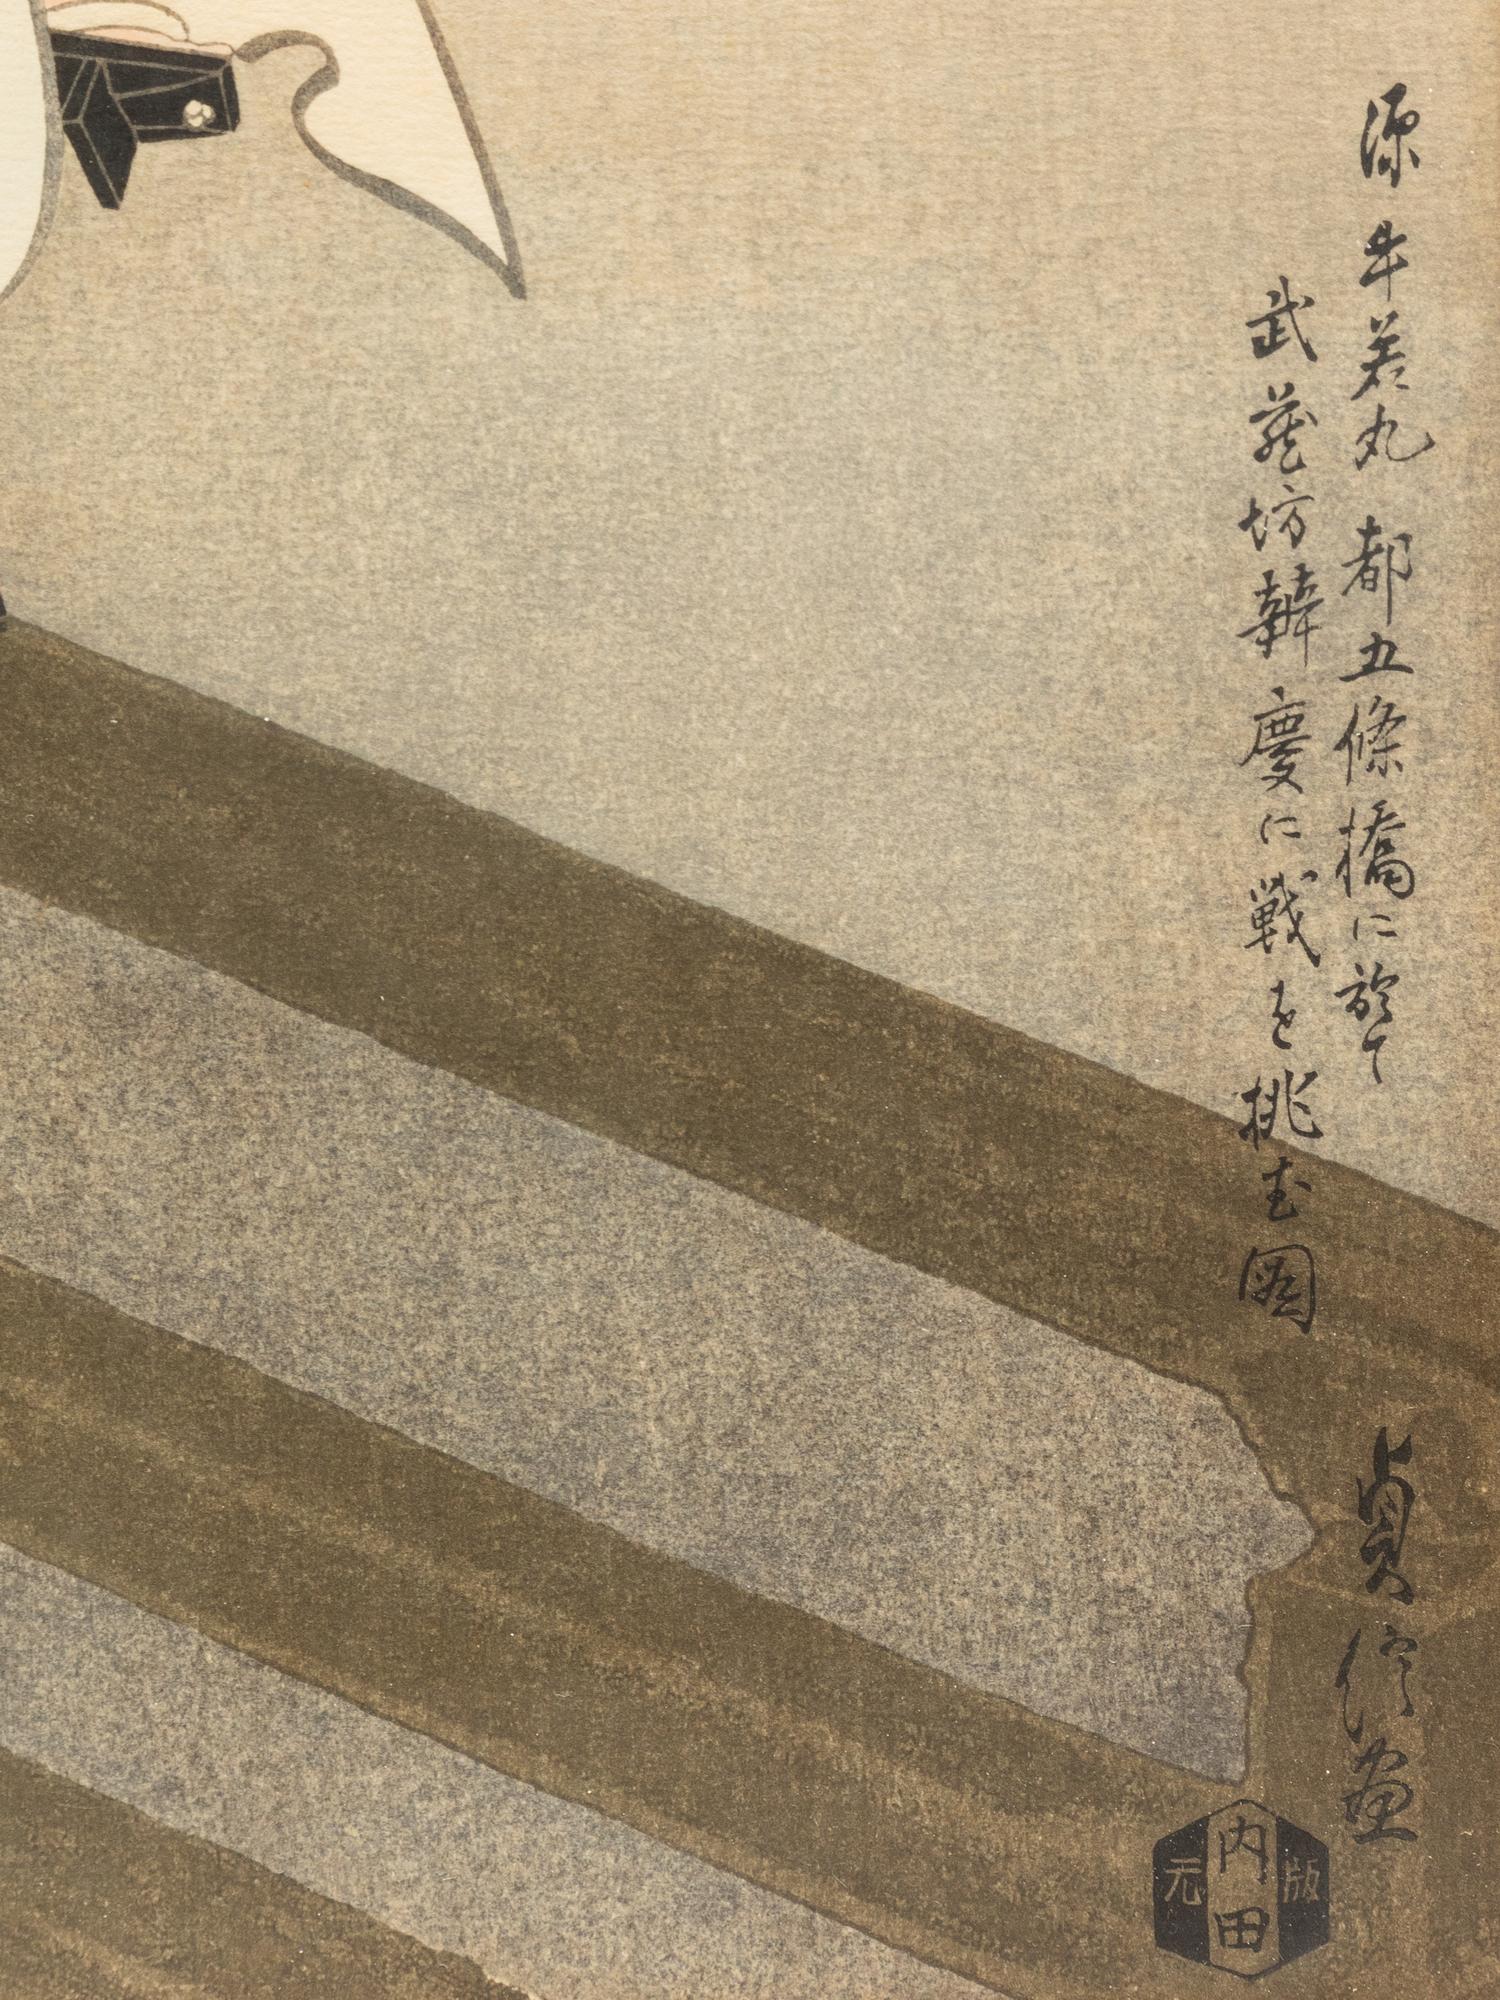 源牛若丸 都五條橋に於て
武蔵坊辨慶に戦を挑む圖
貞信画
版元
内田